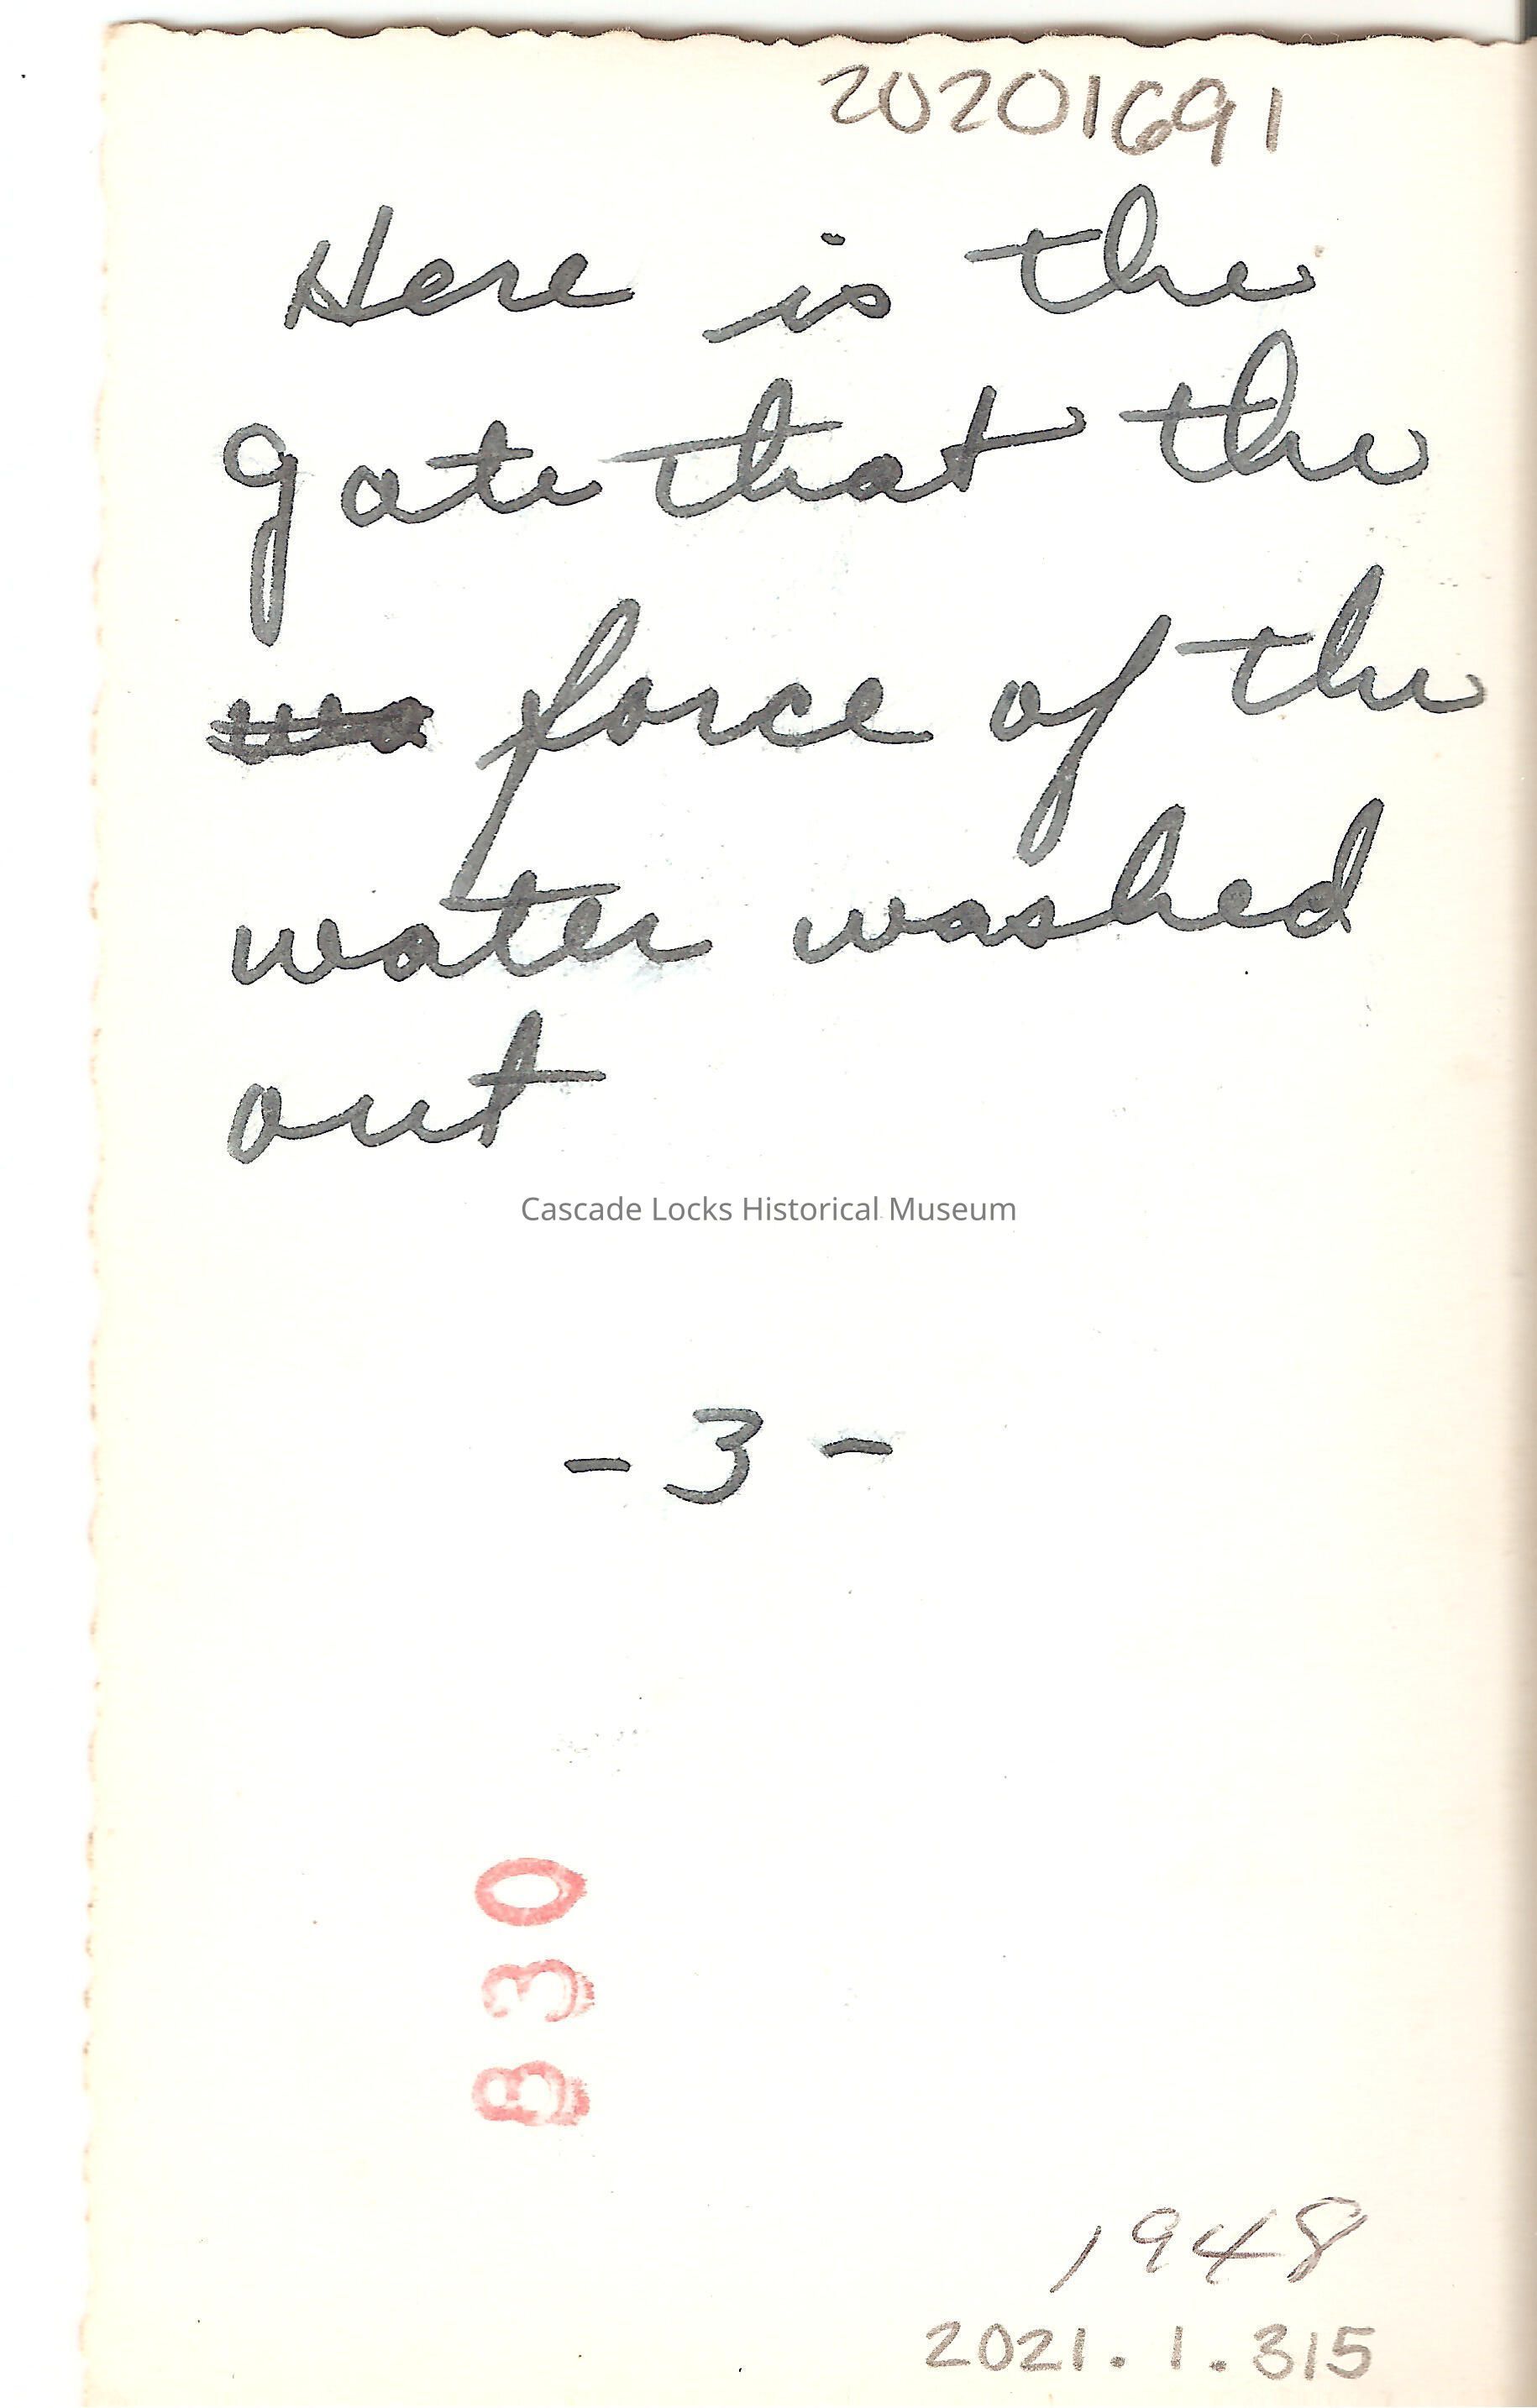 20201691
Here is the
gate that the
force of the
water washed
out
Cascade Locks Historical Museum
- 3 -
830
1948
2021.1.315